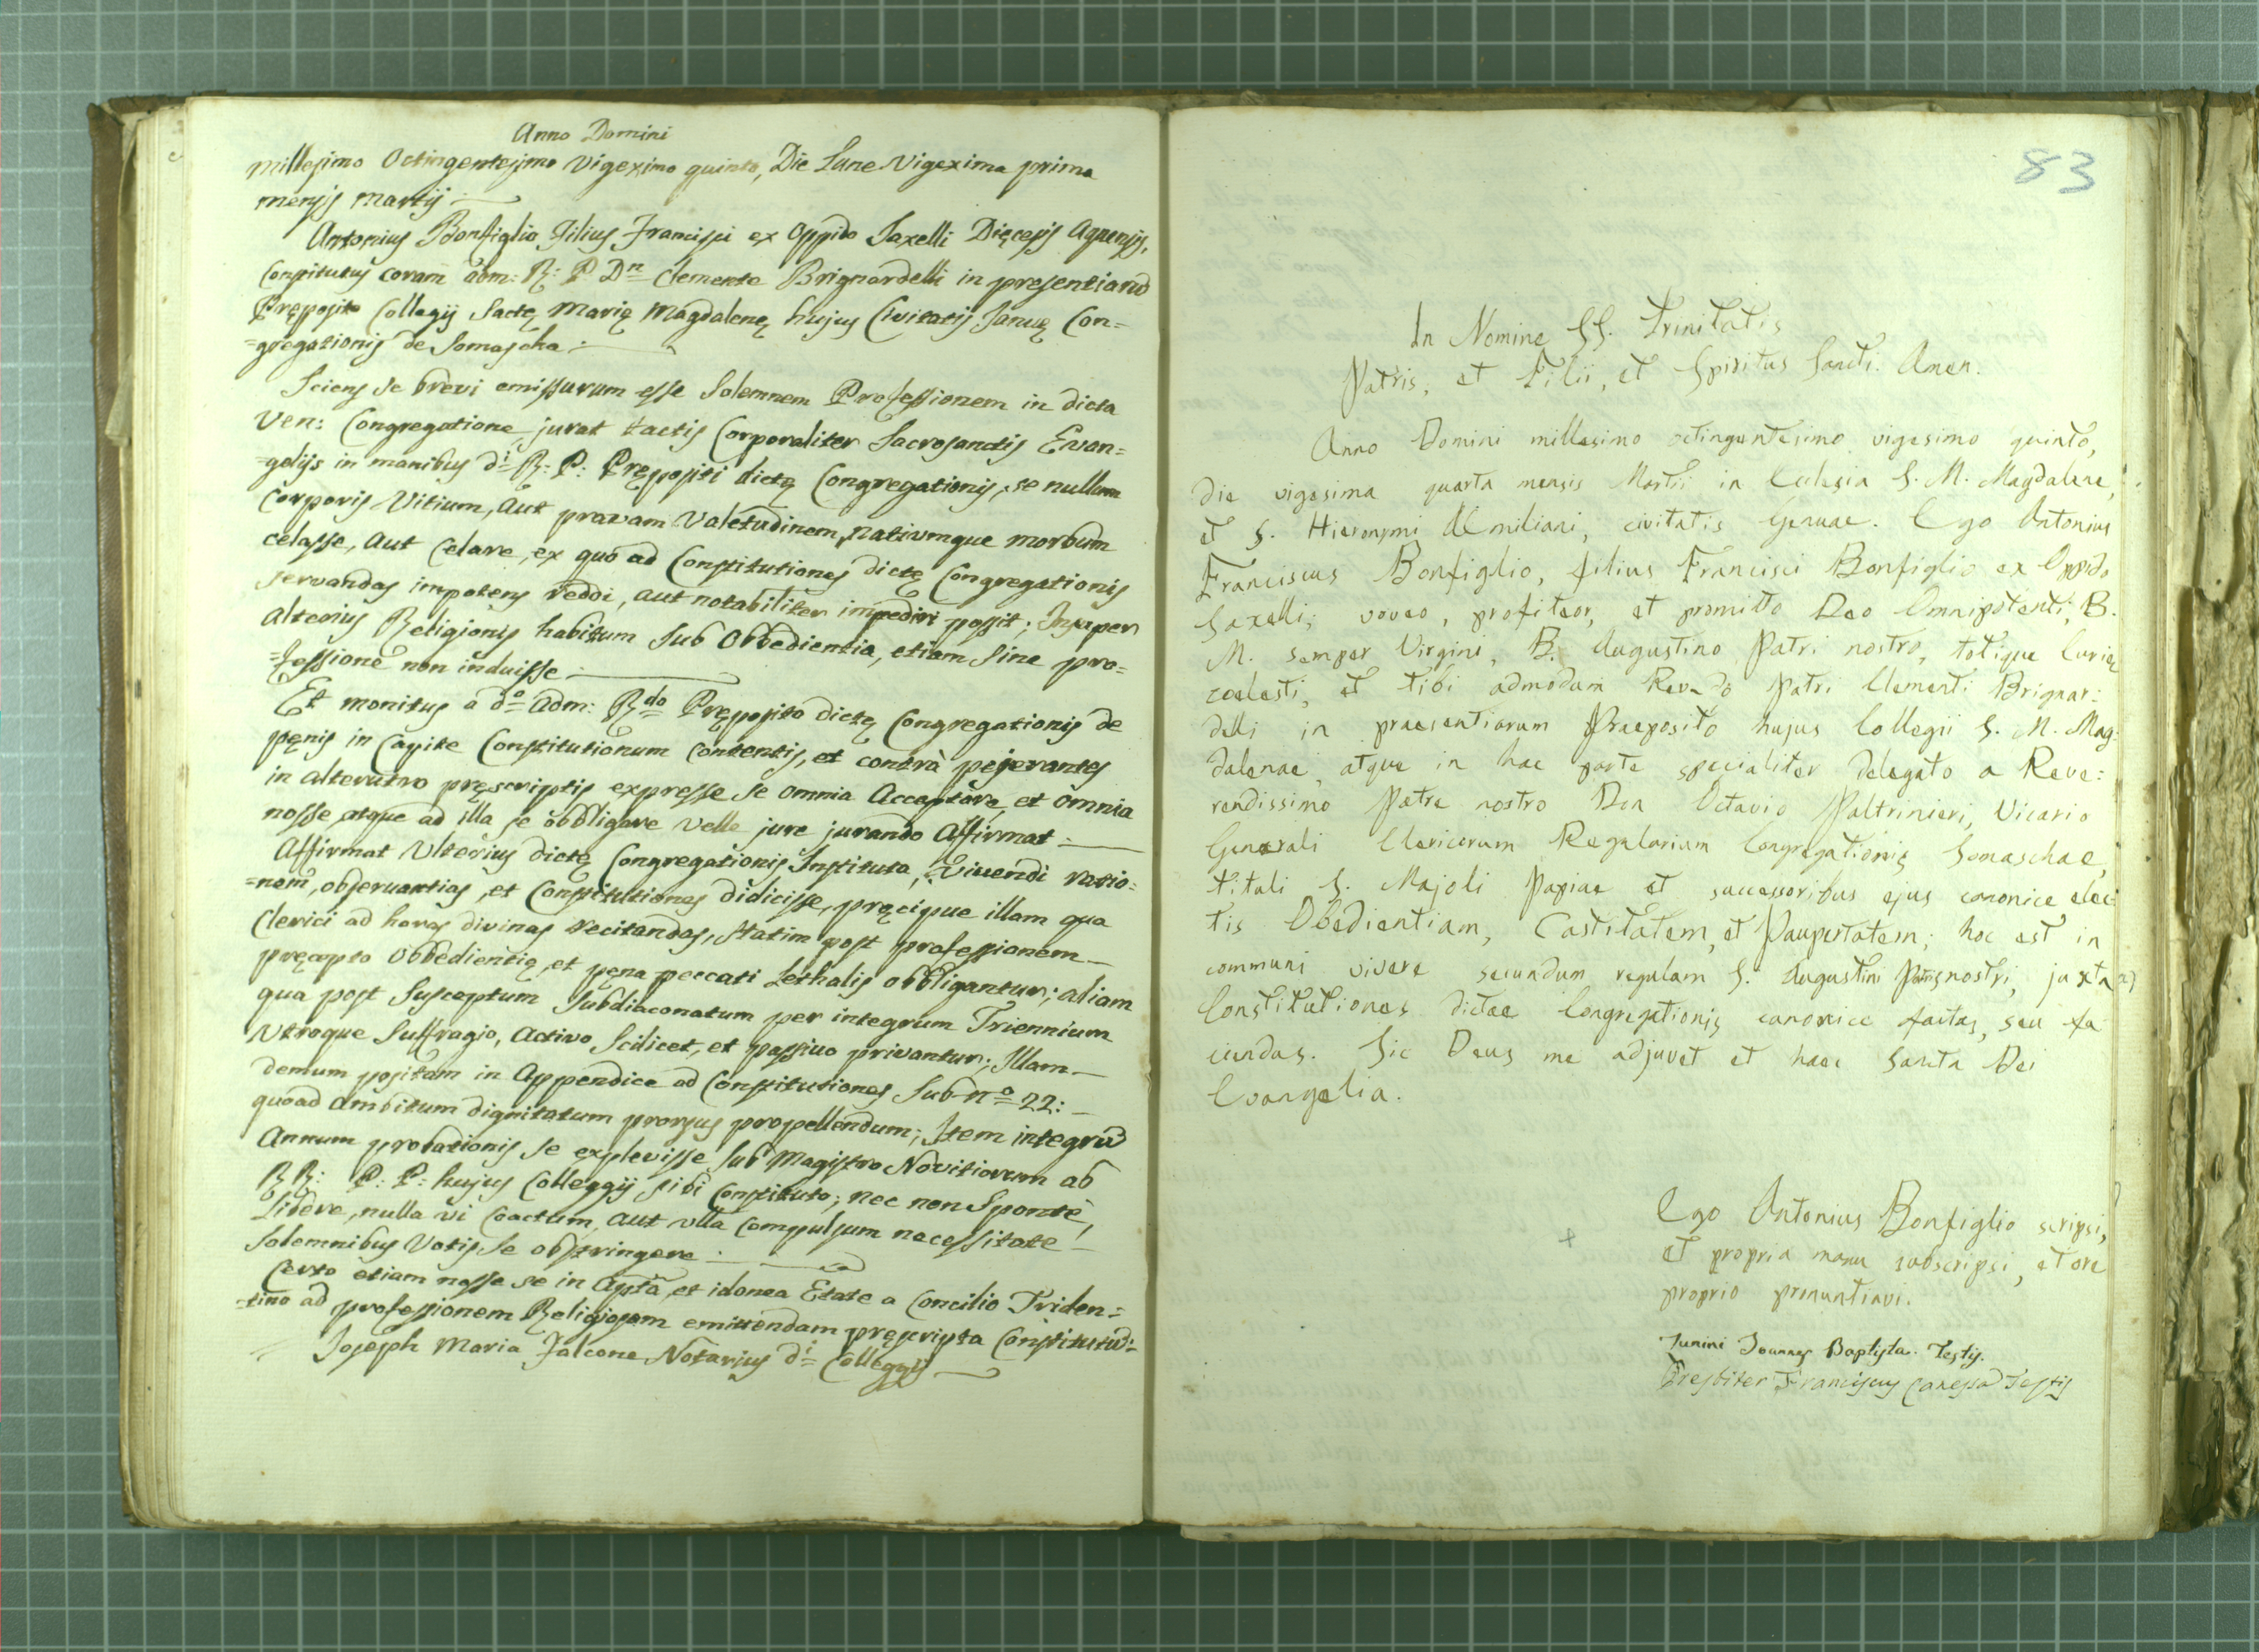 Anno Domini
millesimo Octingentesimo Vigeximo quinto, Die Lune Vigexima prima
mensis martij
Antonius Bonfiglio Filius Francisci ex Oppido Saxelli Diȩcesis Aquensis,
Constitutus coram adm: R: P Dn Clemente Brignardelli in presentiarũ
Prȩposito Collegij Sactȩ Mariȩ Magdalenȩ hujus Civitatis Januȩ Con=
=gregationis de Somascha
Sciens se brevi emissurum esse Solemnem Professionem in dicta
Ven: Congregatione jurat tactis Corporaliter Sacrosanctis Evan=
=gelijs in manibus di R: P: Prȩpositi dictȩ Congregationis, se nullum
Corporis Vitium, aut pravam Valetudinem, nativumque morbum
celasse, aut Celare, ex quo ad Constitutiones dictȩ Congregationis
servandas impotens reddi, aut notabiliter impediri possit; Insuper
alterius Religionis habitum Sub Obbedientia, etiam sine pro=
=fessione non induisse
Et monitus a do adm: Rdo Prȩposito dictȩ Congregationis de
pȩnis in Capite Constitutionum Contentis, et contrà pejerantes
in alterutro prȩscriptis expresse se omnia Acceptare, et omnia
nosse atque ad illa se obbligare velle jure jurando Affirmat
Affirmat Ulterius dictȩ Congregationis Instituta, Vivendi ratio=
=nem, observantias, et Constitutiones didicisse, prȩcipue illam qua
Clerici ad horas divinas recitandas, statim post professionem
prȩcepto Obbedientiȩ, et pȩna peccati Lethalis obbligantur; aliam
qua post Susceptum Subdiaconatum per integrum Triennium
Utroque Suffragio, Activo Scilicet, et passivo privantur; Illam
demum positam in Appendice ad Constitutiones Sub no 22:
quoad ambitum dignitatum prorsus propellendum; Item integrũ
Annum probationis se explevisse Sub Magistro Novitiorum ab
RR: P: P: hujus Colleggij sibi Constituto; nec non Spontè,
Libere, nulla vi Coactum, aut ulla Compulsum necessitate
Solemnibus Votis, se obstringere
Certo etiam nosse se in Apta, et idonea Etate a Concilio Triden=
=tino ad professionem Religiosam emittendam prȩscripta Constitutũ:
Joseph Maria Falcone Notarius di Colleggij
83
In Nomine SS. Trinitatis
Patris, et Filii, et Spiritus Sancti. Amen.
Anno Domini millesimo octingentesimo vigesimo quinto,
die vigesima quarta mensis Martii in Ecclesia S. M. Magdalene,
et S. Hieronymi Æmiliani, civitatis Genuae. Ego Antonius
Franciscus Bonfiglio, filius Francisci Bonfiglio ex Oppido
Saxelli, voveo, profiteor, et promitto Deo Omnipotenti, B.
M. semper Virgini, B. Augustino Patri nostro, totique Curiȩ
coelesti, et tibi admodum Rev-do Patri Clementi Brignar:
delli in praesentiarum Praeposito hujus Collegii S. M. Mag:
dalenae, atque in hac parte specialiter delegato a Reve:
rendissimo Patre nostro Don Octavio Paltrinieri, Vicario
Generali Clericorum Regularium Congregationis Somaschae,
tituli S. Majoli Papiae et successoribus ejus canonice elec:
tis Obedientiam, Castitatem, et Paupertatem; hoc est in
communi vivere secundum regulam S. Augustini Patris nostri, juxta
Constitutiones dictae Congregationis canonice factas, seu fa
ciendas. Sic Deus me adjuvet et haec Sancta Dei
Evangelia.
Ego Antonius Bonfiglio scripsi,
et propria manu subscripsi, et ore
proprio pronuntiavi.
Joannes Baptista. Testis.
Presbiter Franciscus Canessa Testis